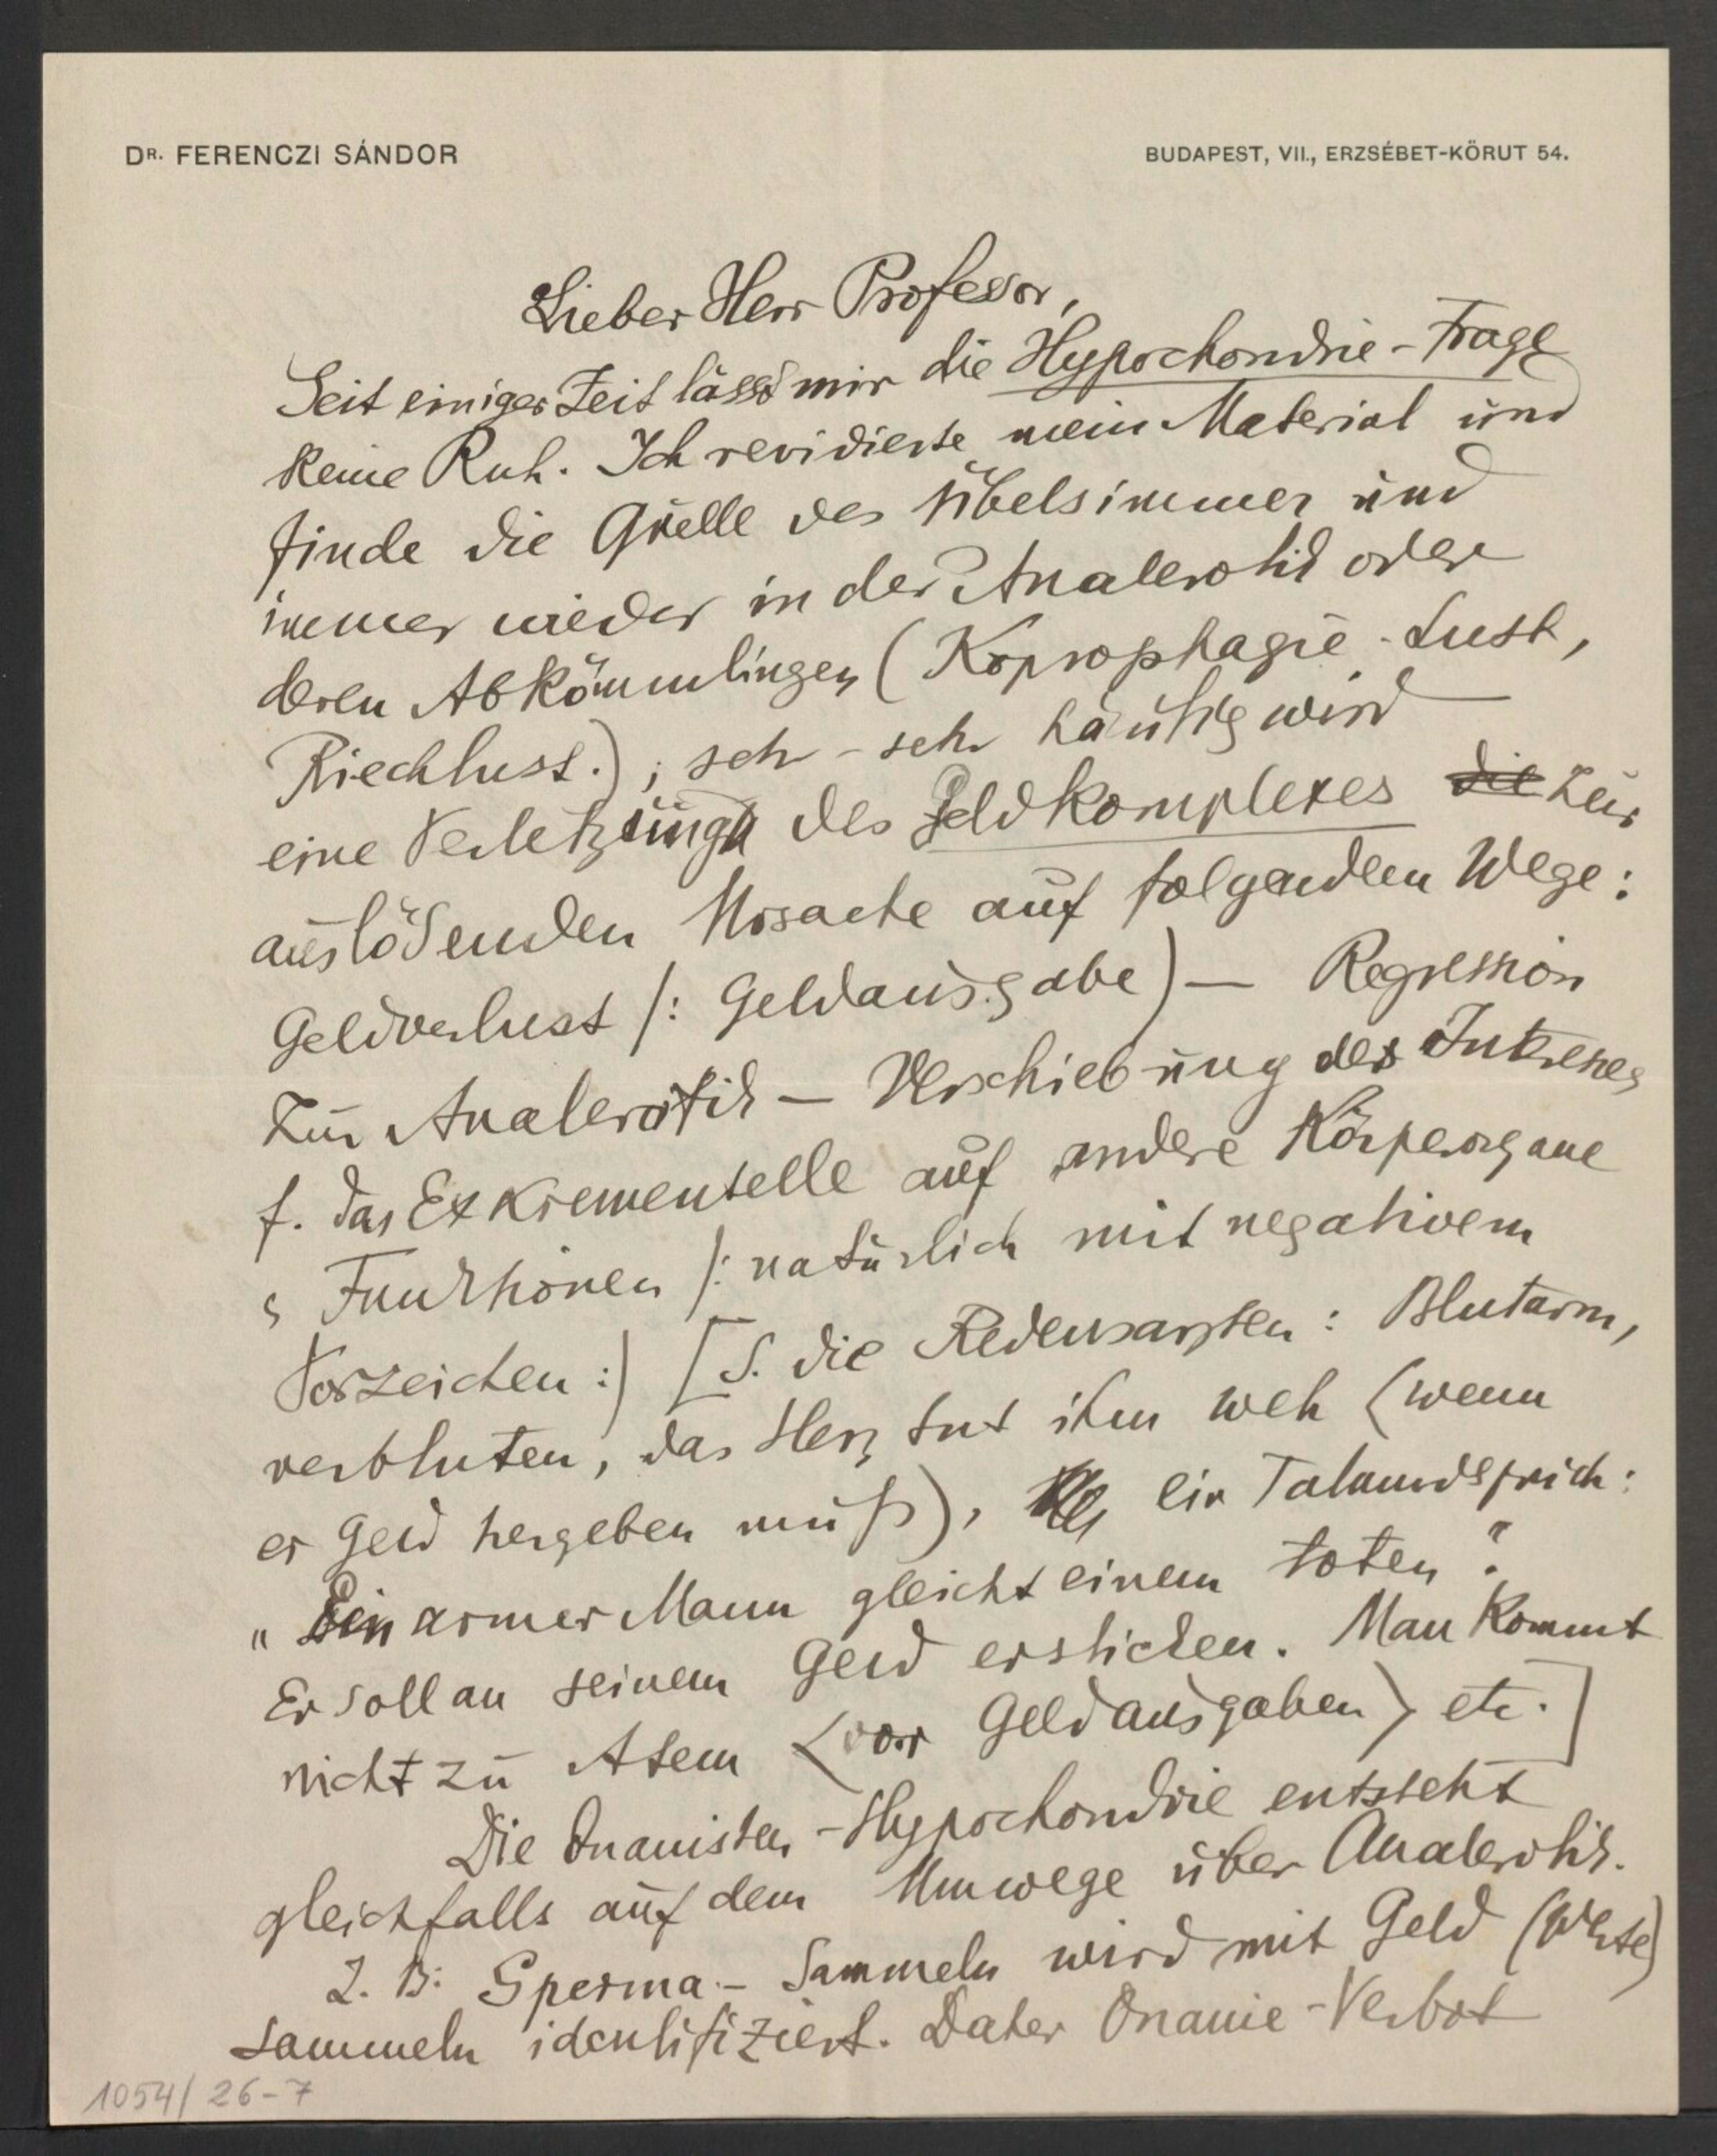 DR. FERENCZI SÁNDOR
BUDAPEST, VII., ERZSÉBET-KÖRUT 54.
Lieber Herr Professor,
Seit einiger Zeit lässt mir die Hypochondrie-Frage
keine Ruh. Ich revidierte mein Material und
finde die Quelle des Übels immer und
immer wieder in der Analerotik oder
deren Abkömmlingen (Koprophagie-Lust,
Riechlust.); sehr-sehr häufig wird
eine Verletzung des Geldkomplexes die zur
auslösenden Ursache auf folgendem Wege:
Geldverlust /: Geldausgabe) — Regression
zur Analerotik — Verschiebung des Interesses
f. das Exkrementelle auf andere Körperorgane
Funktionen /: natürlich mit negativem
Vorzeichen :/ [S. die Redensarten: Blutarm,
verbluten, das Herz tut ihm weh (wenn
er Geld hergeben muß), ein Talmudsprich:
„Ein armer Mann gleicht einem toten".
Er soll an seinem Geld ersticken. Man kommt
nicht zu Atem <vor Geldausgaben> etc.]
Die Onanisten-Hypochondrie entsteht
gleichfalls auf dem Umwege über Analerotik.
Z. B: Sperma-Sammeln wird mit Geld (Werte)
sammeln identifiziert. Daher Onanie-Verbot
1054/26-7